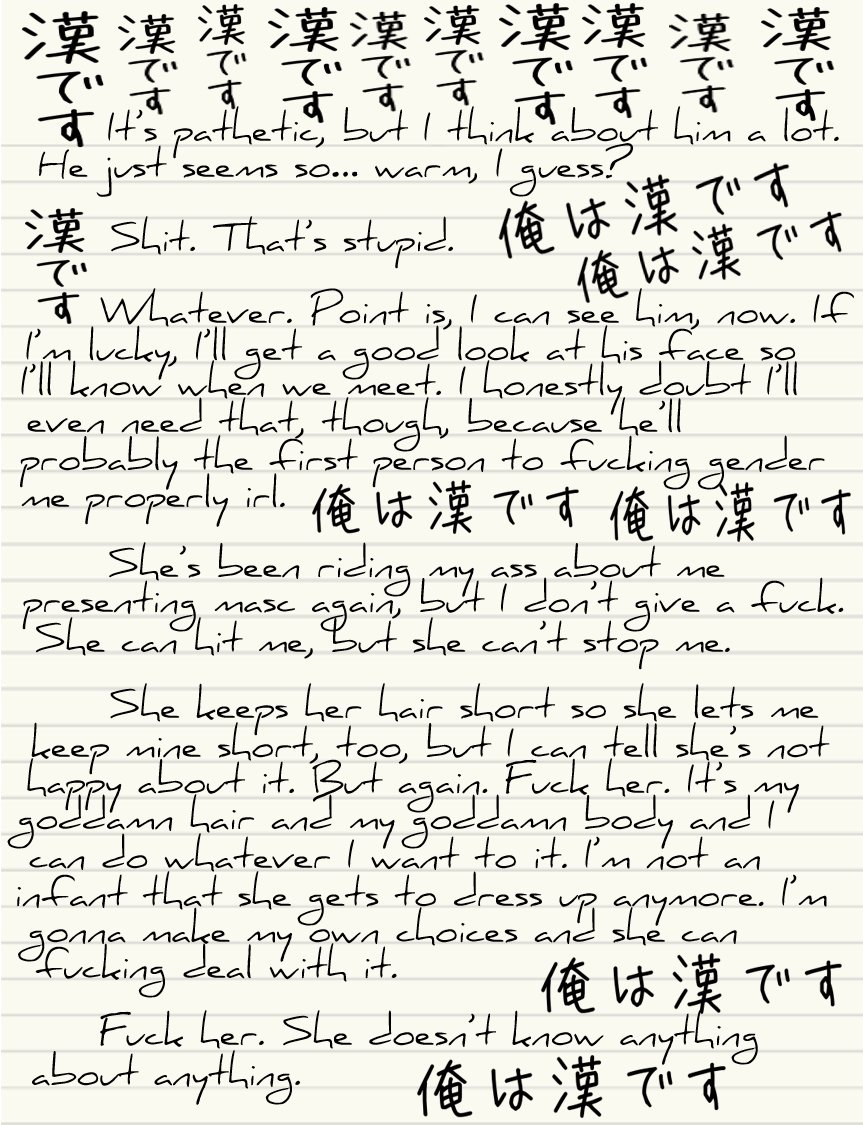 漢です 漢です 漢です 漢です 漢です 漢です 漢です 漢です 漢です 漢です
It's pathetic, but I think about him a lot.
He just seems so... warm, I guess?
俺は漢です
漢です Shit. That's stupid.
俺は漢です
Whatever. Point is, I can see him, now. If
I'm lucky, I'll get a good look at his face so
I'll know when we meet. I honestly doubt I'll
even need that, though, because he'll
probably the first person to fucking gender
me properly irl. 俺は漢です 俺は漢です
She's been riding my ass about me
presenting masc again, but I don't give a fuck.
She can hit me, but she can't stop me.
She keeps her hair short so she lets me
keep mine short, too, but I can tell she's not
happy about it. But again. Fuck her. It's my
goddamn hair and my goddamn body and I
can do whatever I want to it. I'm not an
infant that she gets to dress up anymore. I'm
gonna make my own choices and she can
fucking deal with it. 俺は漢です
Fuck her. She doesn't know anything
about anything. 俺は漢です